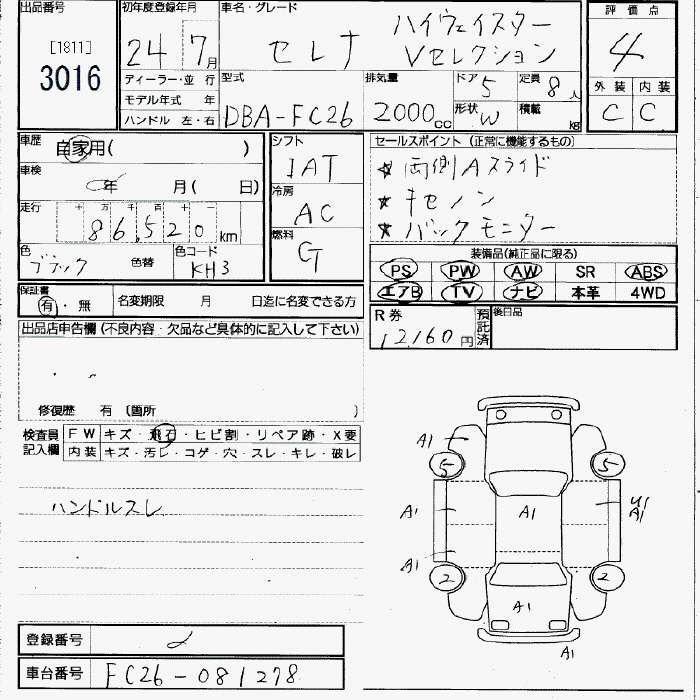 出品番号 初年度登録年月 車名・グレード 評価点
[1811]
3016
24 7月
セレナ ハイウェイスター
Vセレクション
4
ディーラー・並行
モデル年式 年
ハンドル 左・右
型式 排気量 ドア 定員
DBA-FC26 2000cc 5 8人
形状 W 積載 kg
外装 内装
C C
車歴 自家用( )
車検 年 月(日)
走行 十 万 千 百 十 一
86,520km
色 ブラック 色替 色コード KH3
シフト
IAT
冷房
AC
燃料
G
セールスポイント(正常に機能するもの)
★ 両側Aスライド
★ キセノン
★ バックモニター
装備品(純正品に限る)
PS PW AW SR ABS
エアB TV ナビ 本革 4WD
保証書
有・無 名変期限 月 日迄に名変できる方
R券 12,160円 預託済 後日品
出品店申告欄(不良内容・欠品など具体的に記入して下さい)
修復歴 有 (箇所 )
検査員 FW キズ・飛石・ヒビ割・リペア跡・X要
記入欄 内装 キズ・汚レ・コゲ・穴・スレ・キレ・破レ
ハンドルスレ
A1
5 5
A1 A1 U1
A1
A1
2 2
A1
A1
登録番号
車台番号 FC26-081278